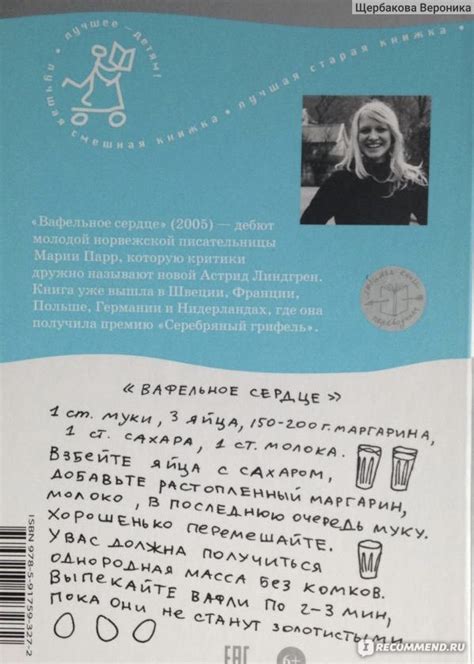 Щербакова Вероника
лучшее - детям!
смешная книжка • лучшая старая книжка •
«Вафельное сердце» (2005) — дебют
молодой норвежской писательницы
Марии Парр, которую критики
дружно называют новой Астрид Линдгрен.
Книга уже вышла в Швеции, Франции,
Польше, Германии и Нидерландах, где она
получила премию «Серебряный грифель».
«ВАФЕЛЬНОЕ СЕРДЦЕ»
1 СТ. МУКИ, 3 ЯЙЦА, 150-200 Г. МАРГАРИНА,
1 СТ. САХАРА, 1 СТ. МОЛОКА.
ВЗБЕЙТЕ ЯЙЦА С САХАРОМ,
ДОБАВЬТЕ РАСТОПЛЕННЫЙ МАРГАРИН,
МОЛОКО, В ПОСЛЕДНЮЮ ОЧЕРЕДЬ МУКУ.
ХОРОШЕНЬКО ПЕРЕМЕШАЙТЕ.
У ВАС ДОЛЖНА ПОЛУЧИТЬСЯ
ОДНОРОДНАЯ МАССА БЕЗ КОМКОВ.
ВЫПЕКАЙТЕ ВАФЛИ ПО 2-3 МИН,
ПОКА ОНИ НЕ СТАНУТ ЗОЛОТИСТЫМИ
ISBN 978-5-91759-327-2
EAC
6+
IRECOMMEND.RU